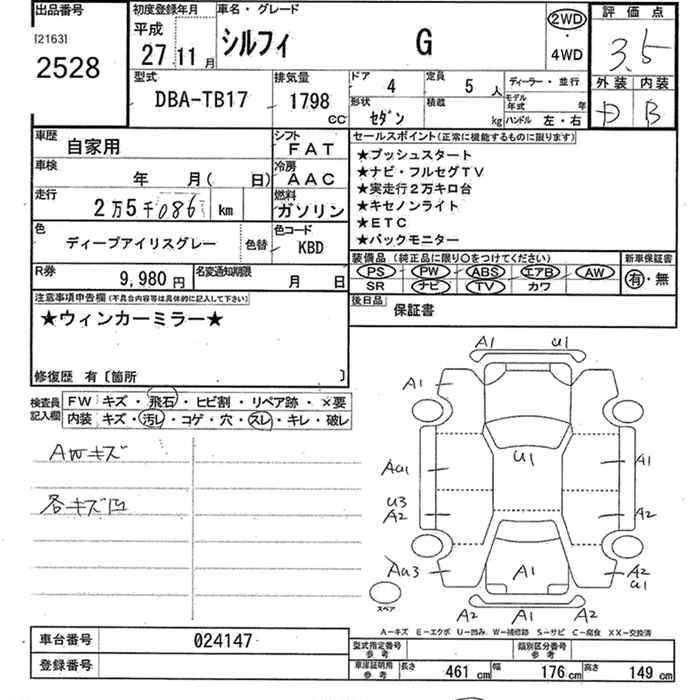 出品番号
[2163]
2528
初度登録年月
平成
27年11月
車名・グレード
シルフィ G
2WD
・
4WD
評価点
3.5
外装 内装
D B
型式
DBA-TB17
排気量
1798
CC
ドア 4
定員 5人
形状 セダン
積載 kg
ディーラー・並行
モデル年式 年
ハンドル 左・右
車歴 自家用
シフト FAT
車検 年 月( 日)
冷房 AAC
走行 2万5千086 km
燃料 ガソリン
色 ディープアイリスグレー
色替
色コード KBD
R券 9,980円
名変通知期限 月 日
セールスポイント(正常に機能するものに限ります)
★プッシュスタート
★ナビ・フルセグTV
★実走行2万キロ台
★キセノンライト
★ETC
★バックモニター
装備品 (純正品に限り○をつけてください)
PS PW ABS エアB AW
SR ナビ TV カワ
新車保証書
有・無
後日品 保証書
注意事項申告欄(不具合内容等は具体的に記入して下さい)
★ウィンカーミラー★
修復歴 有〔箇所 〕
検査員記入欄
FW キズ・飛石・ヒビ割・リペア跡・×要
内装 キズ・汚レ・コゲ・穴・スレ・キレ・破レ
AWキズ
各キズ凹
A1 U1
A1
U1
AU1
A1
U3
A2
A2
AU3
A1
A2
U1
A2 A1 A2
スペア
A-キズ E-エクボ U-凹み W-補修跡 S-サビ C-腐食 XX-交換済
車台番号 024147
登録番号
型式指定番号参考
類別区分番号参考
車庫証明用参考
長さ 461cm
幅 176cm
高さ 149cm